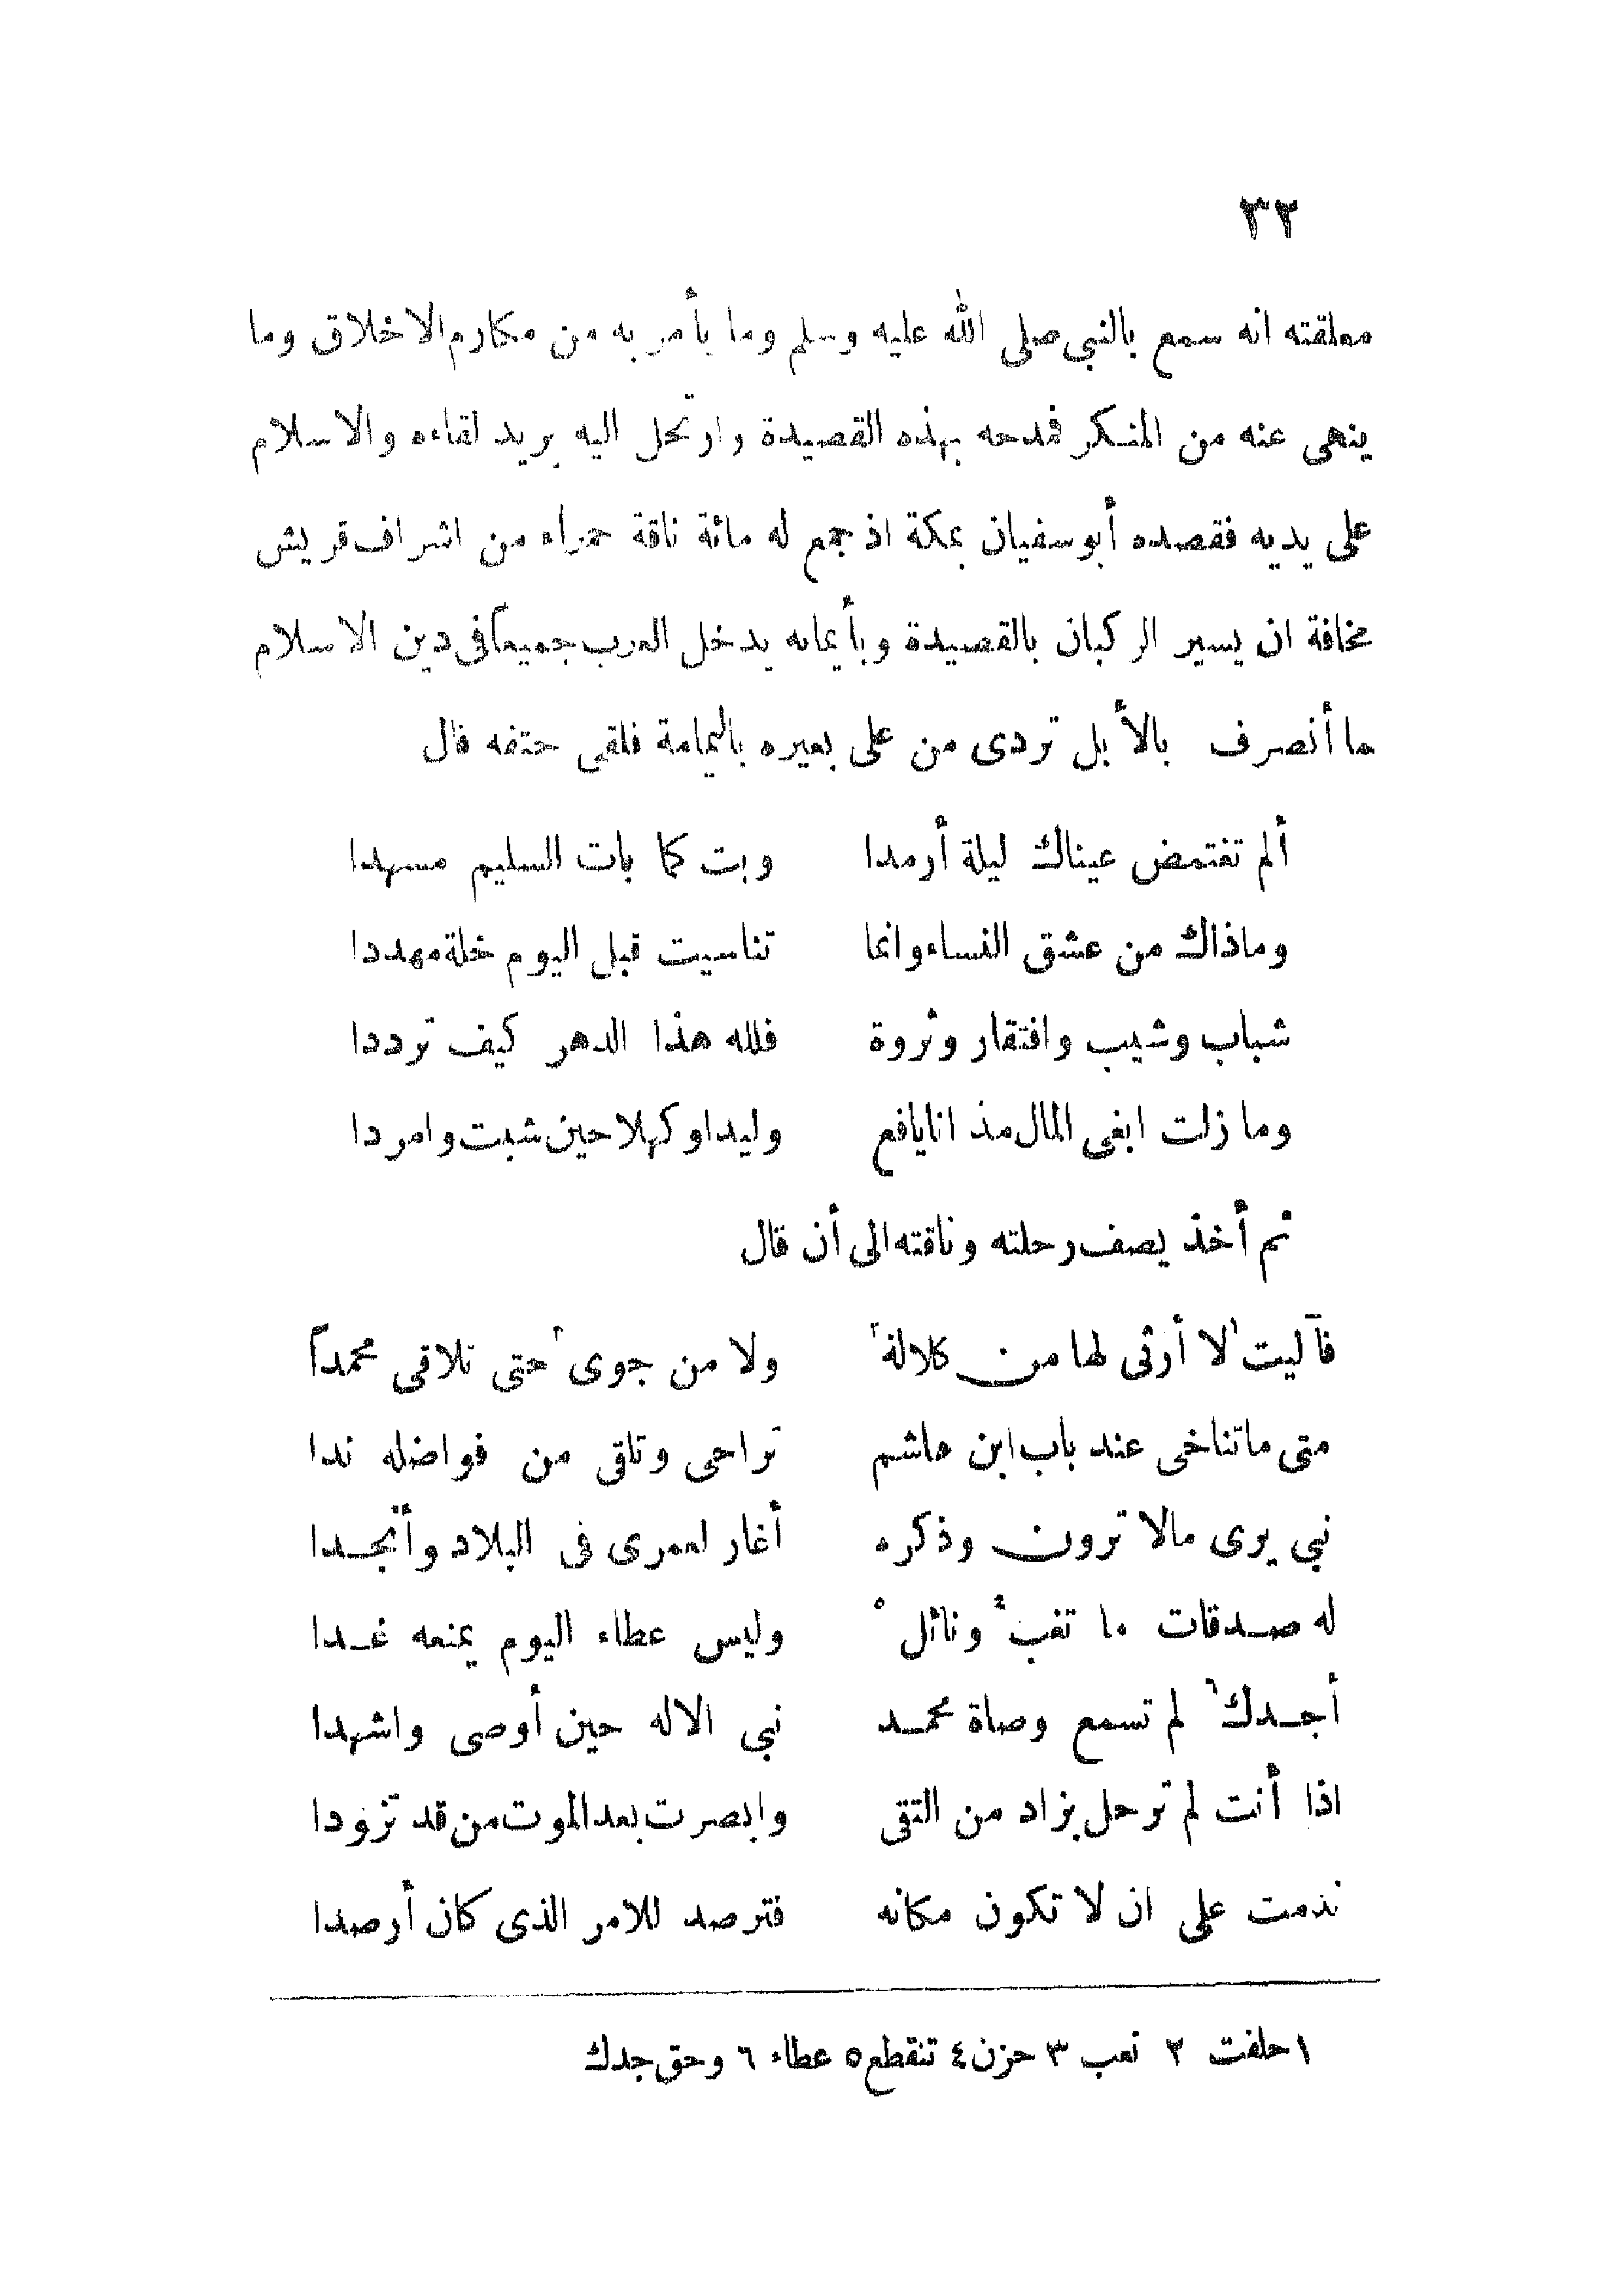 ٣٢
معلقته انه سمع بالنبي صلى الله عليه وسلم وما يأمر به من مكارم الاخلاق وما
ينهى عنه من المنكر فمدحه بهذه القصيدة وارتحل اليه يريد لقاءه والاسلام
على يديه فقصده أبو سفيان بمكة اذ جمع له مائة ناقة حمراء من اشراف قريش
مخافة ان يسير الركبان بالقصيدة وبأيمانه يدخل العرب جميعاً فى دين الاسلام
ما أنصرف بالأبل تردى من على بعيره باليمامة فلقى حتفه قال
ألم تغتمض عيناك ليلة أرمدا وبت كما بات السليم مسهدا
وماذاك من عشق النساء وانما تناسيت قبل اليوم خلة مهددا
شباب وشيب وافتقار وثروة فلله هذا الدهر كيف ترددا
وما زلت ابغى المال مذ انا يافع وليدا وكهلا حين شبت وامردا
ثم أخذ يصف رحلته وناقته الى أن قال
فآليت١ لا أرثى لها من كلالة٢ ولا من جوى٣ حتى تلاقى محمداً
متى ما تناخى عند باب ابن هاشم تراحى وتلقى من فواضله ندا
نبي يرى مالا ترون وذكره أغار لعمرى فى البلاد وأنجدا
له صدقات ما تغب٤ ونائل٥ وليس عطاء اليوم يمنعه غدا
أجدك٦ لم تسمع وصاة محمد نبي الاله حين أوصى واشهدا
اذا أنت لم ترحل بزاد من التقى وابصرت بعد الموت من قد تزودا
ندمت على ان لا تكون مكانه فترصد للامر الذى كان أرصدا
١ حلفت ٢ تعب ٣ حزن ٤ تنقطع ٥ عطاء ٦ وحق جدك